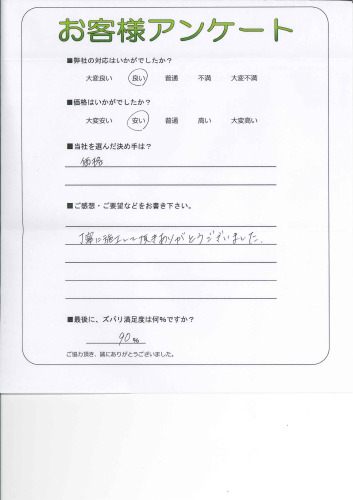 お客様アンケート
■弊社の対応はいかがでしたか？
大変良い 良い 普通 不満 大変不満
■価格はいかがでしたか？
大変安い 安い 普通 高い 大変高い
■当社を選んだ決め手は？
価格
■ご感想・ご要望などをお書き下さい。
丁寧に施工して頂きありがとうございました。
■最後に、ズバリ満足度は何％ですか？
90 %
ご協力頂き、誠にありがとうございました。